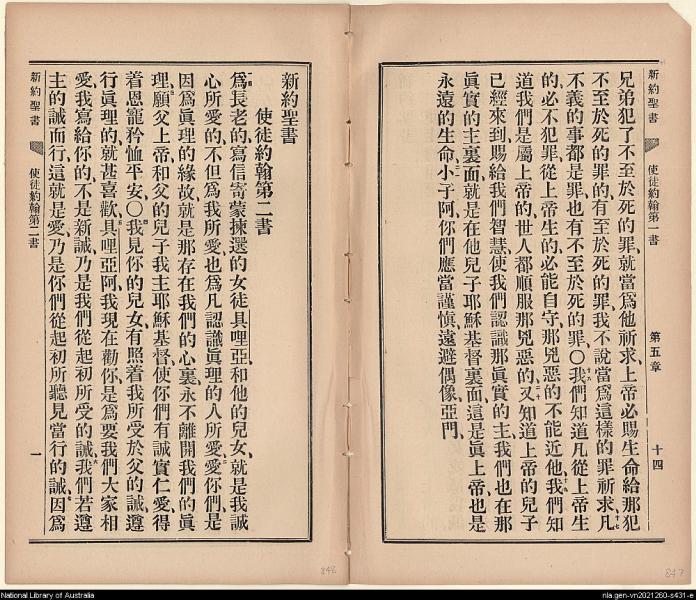 新約聖書 使徒約翰第一書 第五章 十四
兄弟犯了不至於死的罪、就當爲他祈求、上帝必賜生命給那犯
不至於死的罪的、有至於死的罪、我不說當爲這樣的罪祈求、凡
不義的事都是罪、也有不至於死的罪、〇我們知道凡從上帝生
的必不犯罪、從上帝生的必能自守、那兇惡的不能近他、我們知
道我們是屬上帝的、世人都順服那兇惡的、又知道上帝的兒子
已經來到、賜給我們智慧、使我們認識那眞實的主、我們也在那
眞實的主裏面、就是在他兒子耶穌基督裏面、這是眞上帝、也是
永遠的生命、小子阿、你們應當謹慎、遠避偶像、亞門、
847
新約聖書
使徒約翰第二書
爲長老的、寫信寄蒙揀選的女徒具哩亞、和他的兒女、就是我誠
心所愛的、不但爲我所愛、也爲凡認識眞理的人所愛、愛你們是
因爲眞理的緣故、就是那存在我們的心裏、永不離開我們的眞
理、願父上帝、和父的兒子我主耶穌基督、使你們有誠實仁愛、得
着恩寵矜恤平安、〇我見你的兒女、有照着我所受於父的誡、遵
行眞理的、就甚喜歡、具哩亞阿、我現在勸你、是爲要我們大家相
愛、我寫給你的、不是新誡、乃是我們從起初所受的誡、我們若遵
主的誡而行、這就是愛、乃是你們從起初所聽見當行的誡、因爲
新約聖書 使徒約翰第二書 一
848
National Library of Australia
nla.gen-vn2021260-s431-e